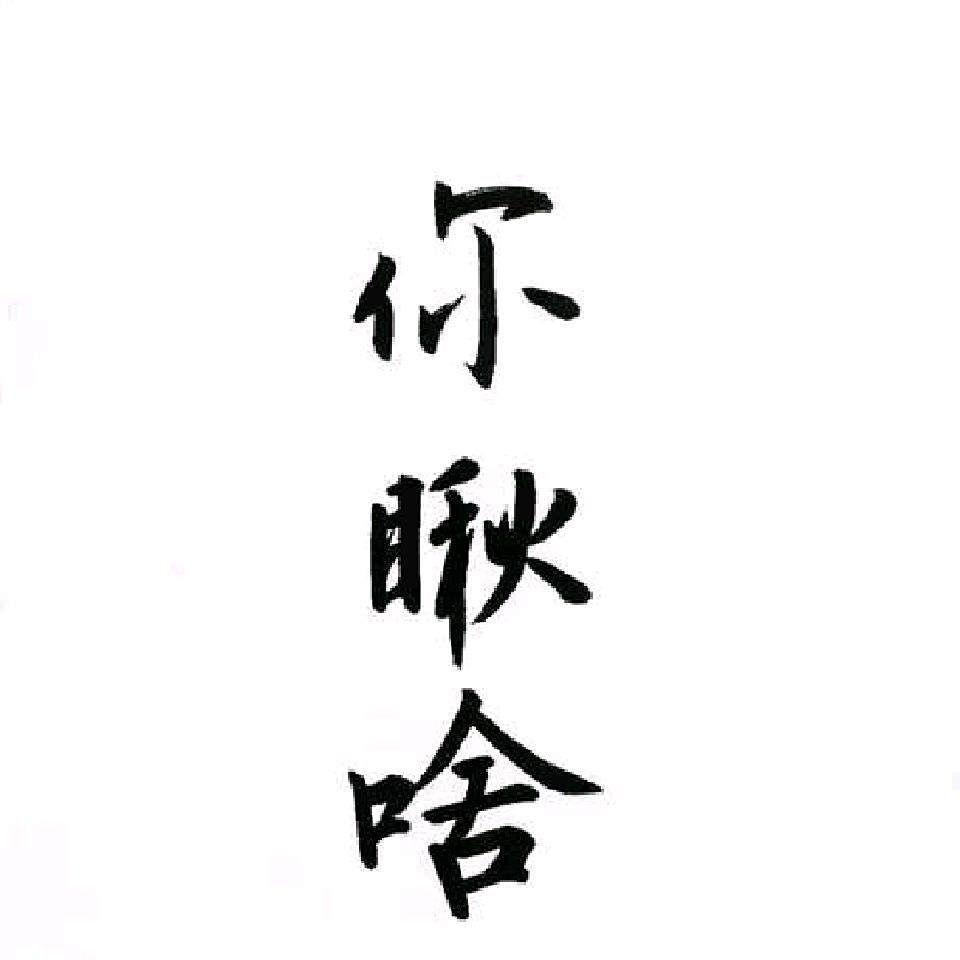 你瞅啥